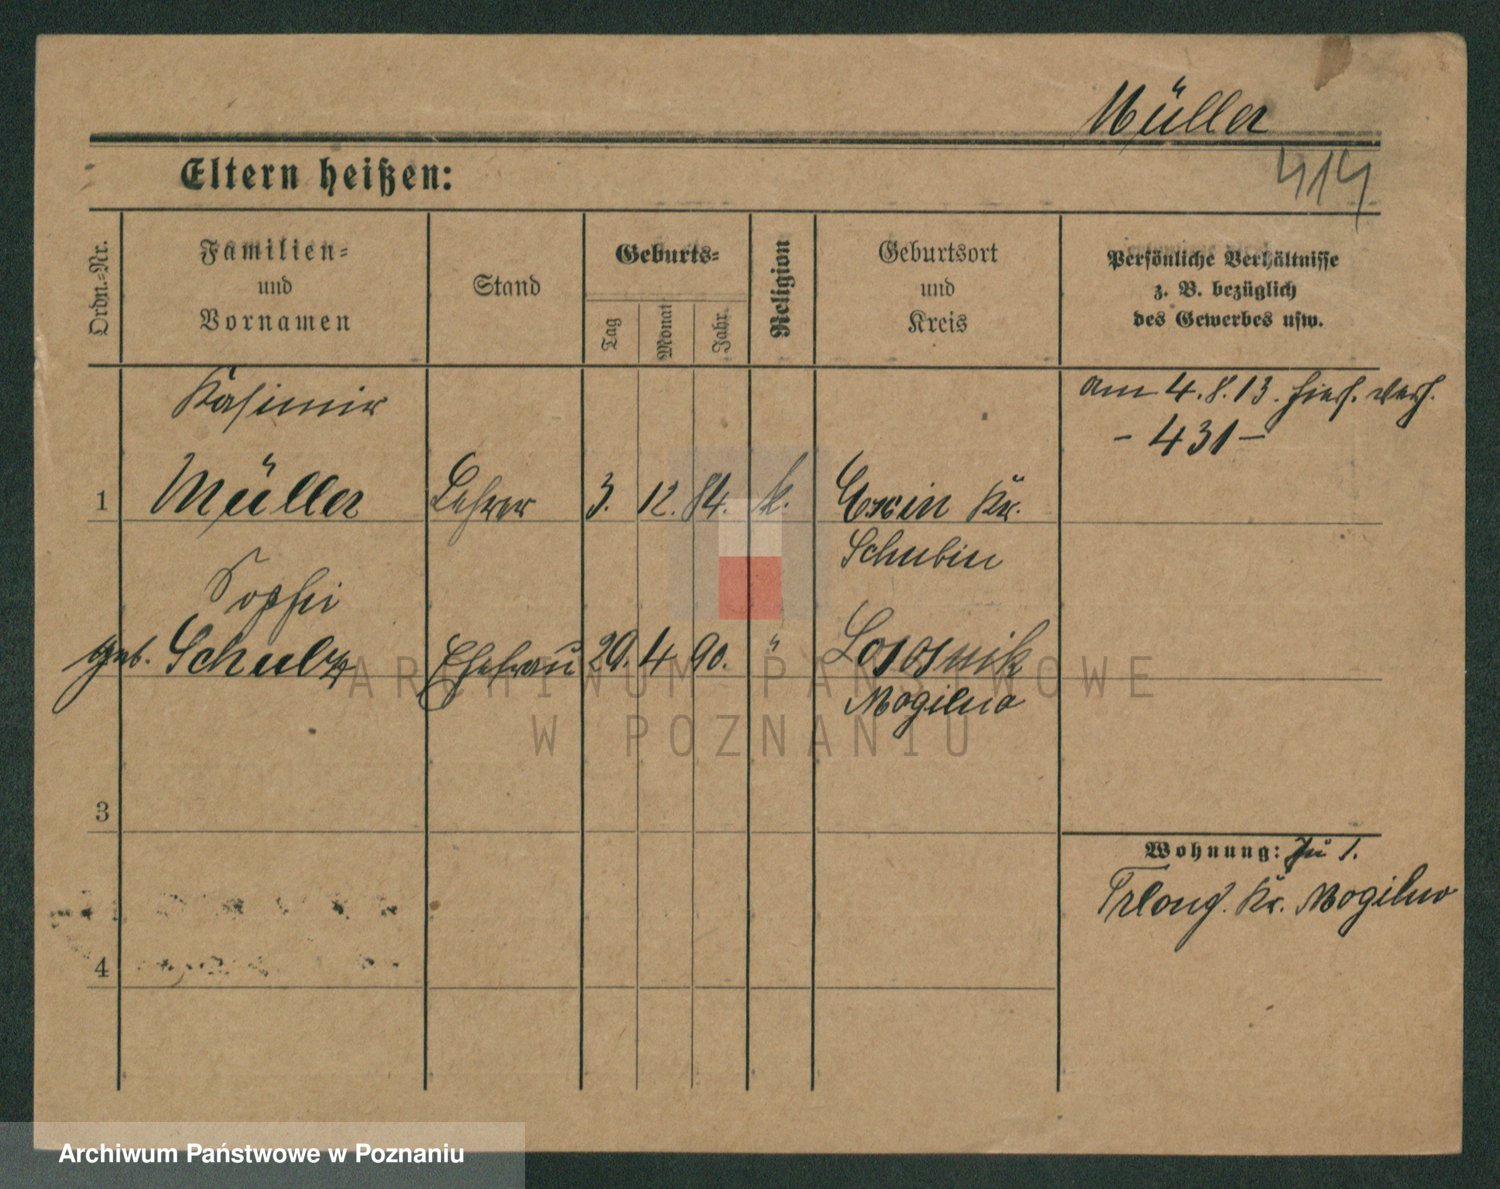 Müller
414
Eltern heißen:
Ordn.-Nr.
Familien-
und
Vornamen
Stand
Geburts-
Tag
Monat
Jahr.
Religion
Geburtsort
und
Kreis
Persönliche Verhältnisse
z. B. bezüglich
des Gewerbes usw.
Kasimir
am 4.8.13. hies. verh.
- 431 -
1 Müller Lehrer 3. 12. 84. k. Exin Kr.
Schubin
Sophie
geb. Schulz Ehefrau 29. 4. 90. "
Mogilno
3
Wohnung: Zu 1.
Trlong. Kr. Mogilno
4
ARCHIWUM PAŃSTWOWE
W POZNANIU
Archiwum Państwowe w Poznaniu